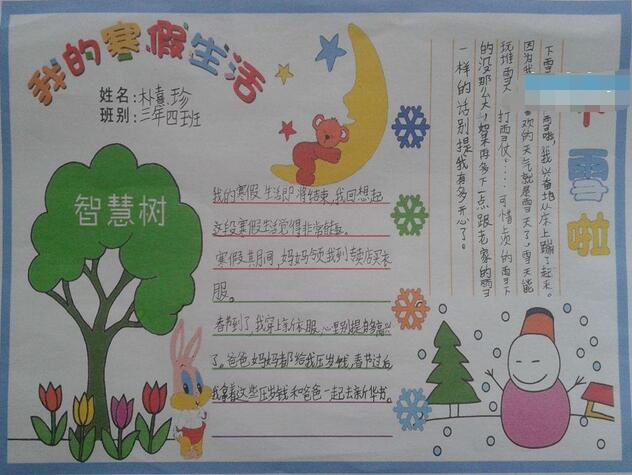 我的寒假生活
姓名:朴喜珍
班别:三年四班
智慧树
我的寒假生活即将结束,我回想起
这段寒假生活觉得非常
寒假其间,妈妈领我到专卖店买衣
服。
春节到了,我穿上新衣服,心里别提多高兴
了。爸爸妈妈都给我压岁钱,春节过后
我拿着这些压岁钱和爸爸一起去新华书。
雪啦
下雪
雪哦,我兴奋地从床上蹦了起来。
因为我
欢的天气就是雪天了,雪天能
玩堆雪人
打雪仗……可惜上
的没那么大,如果再多下一点跟老家的
一样的话别提我有多开心了。